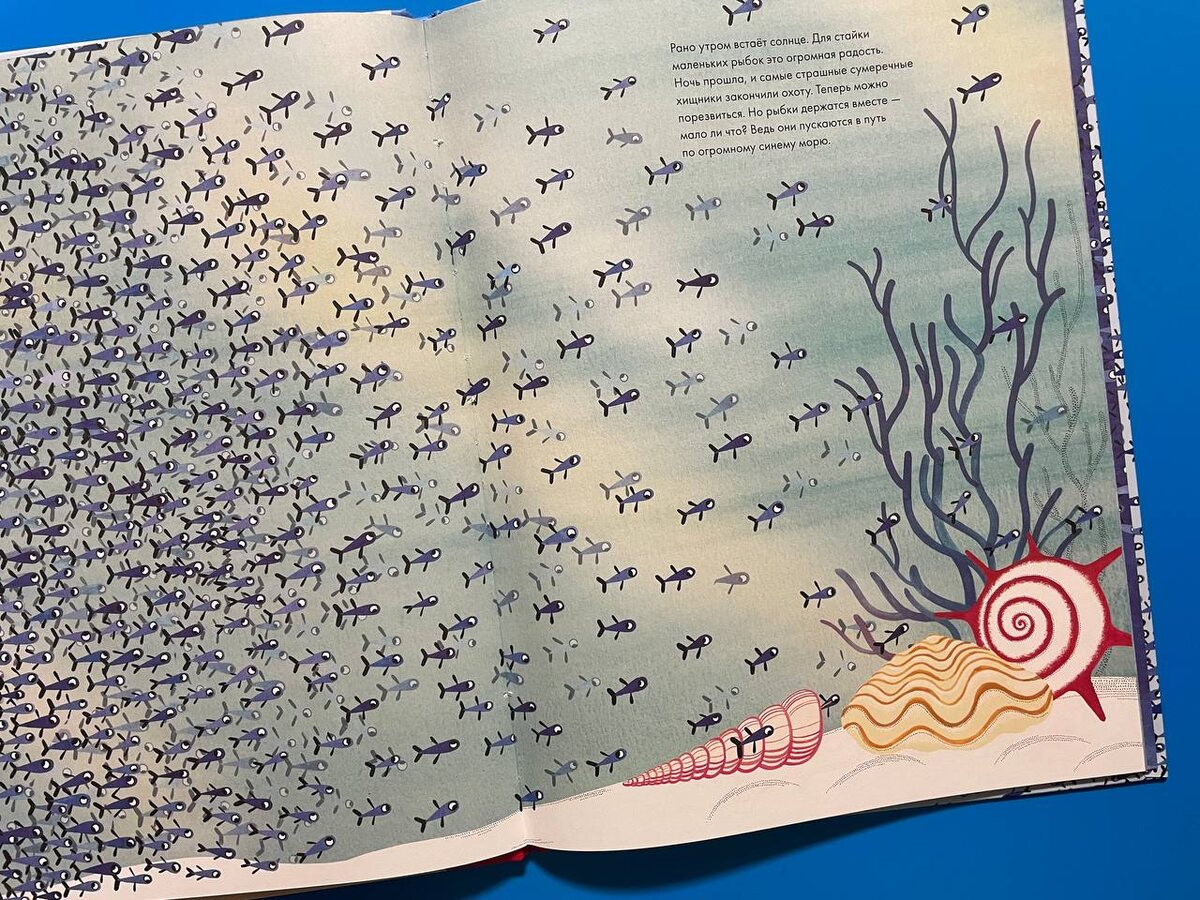 Рано утром встаёт солнце. Для стайки
маленьких рыбок это огромная радость.
Ночь прошла, и самые страшные сумеречные
хищники закончили охоту. Теперь можно
порезвиться. Но рыбки держатся вместе —
мало ли что? Ведь они пускаются в путь
по огромному синему морю.